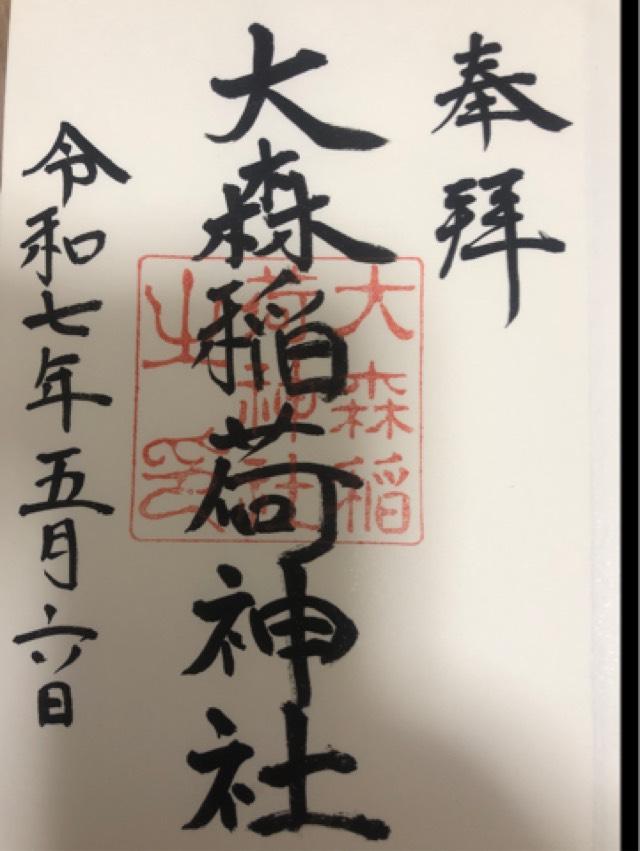 奉拝
大森稲荷神社
大森稲
荷神社
之印
令和七年五月六日